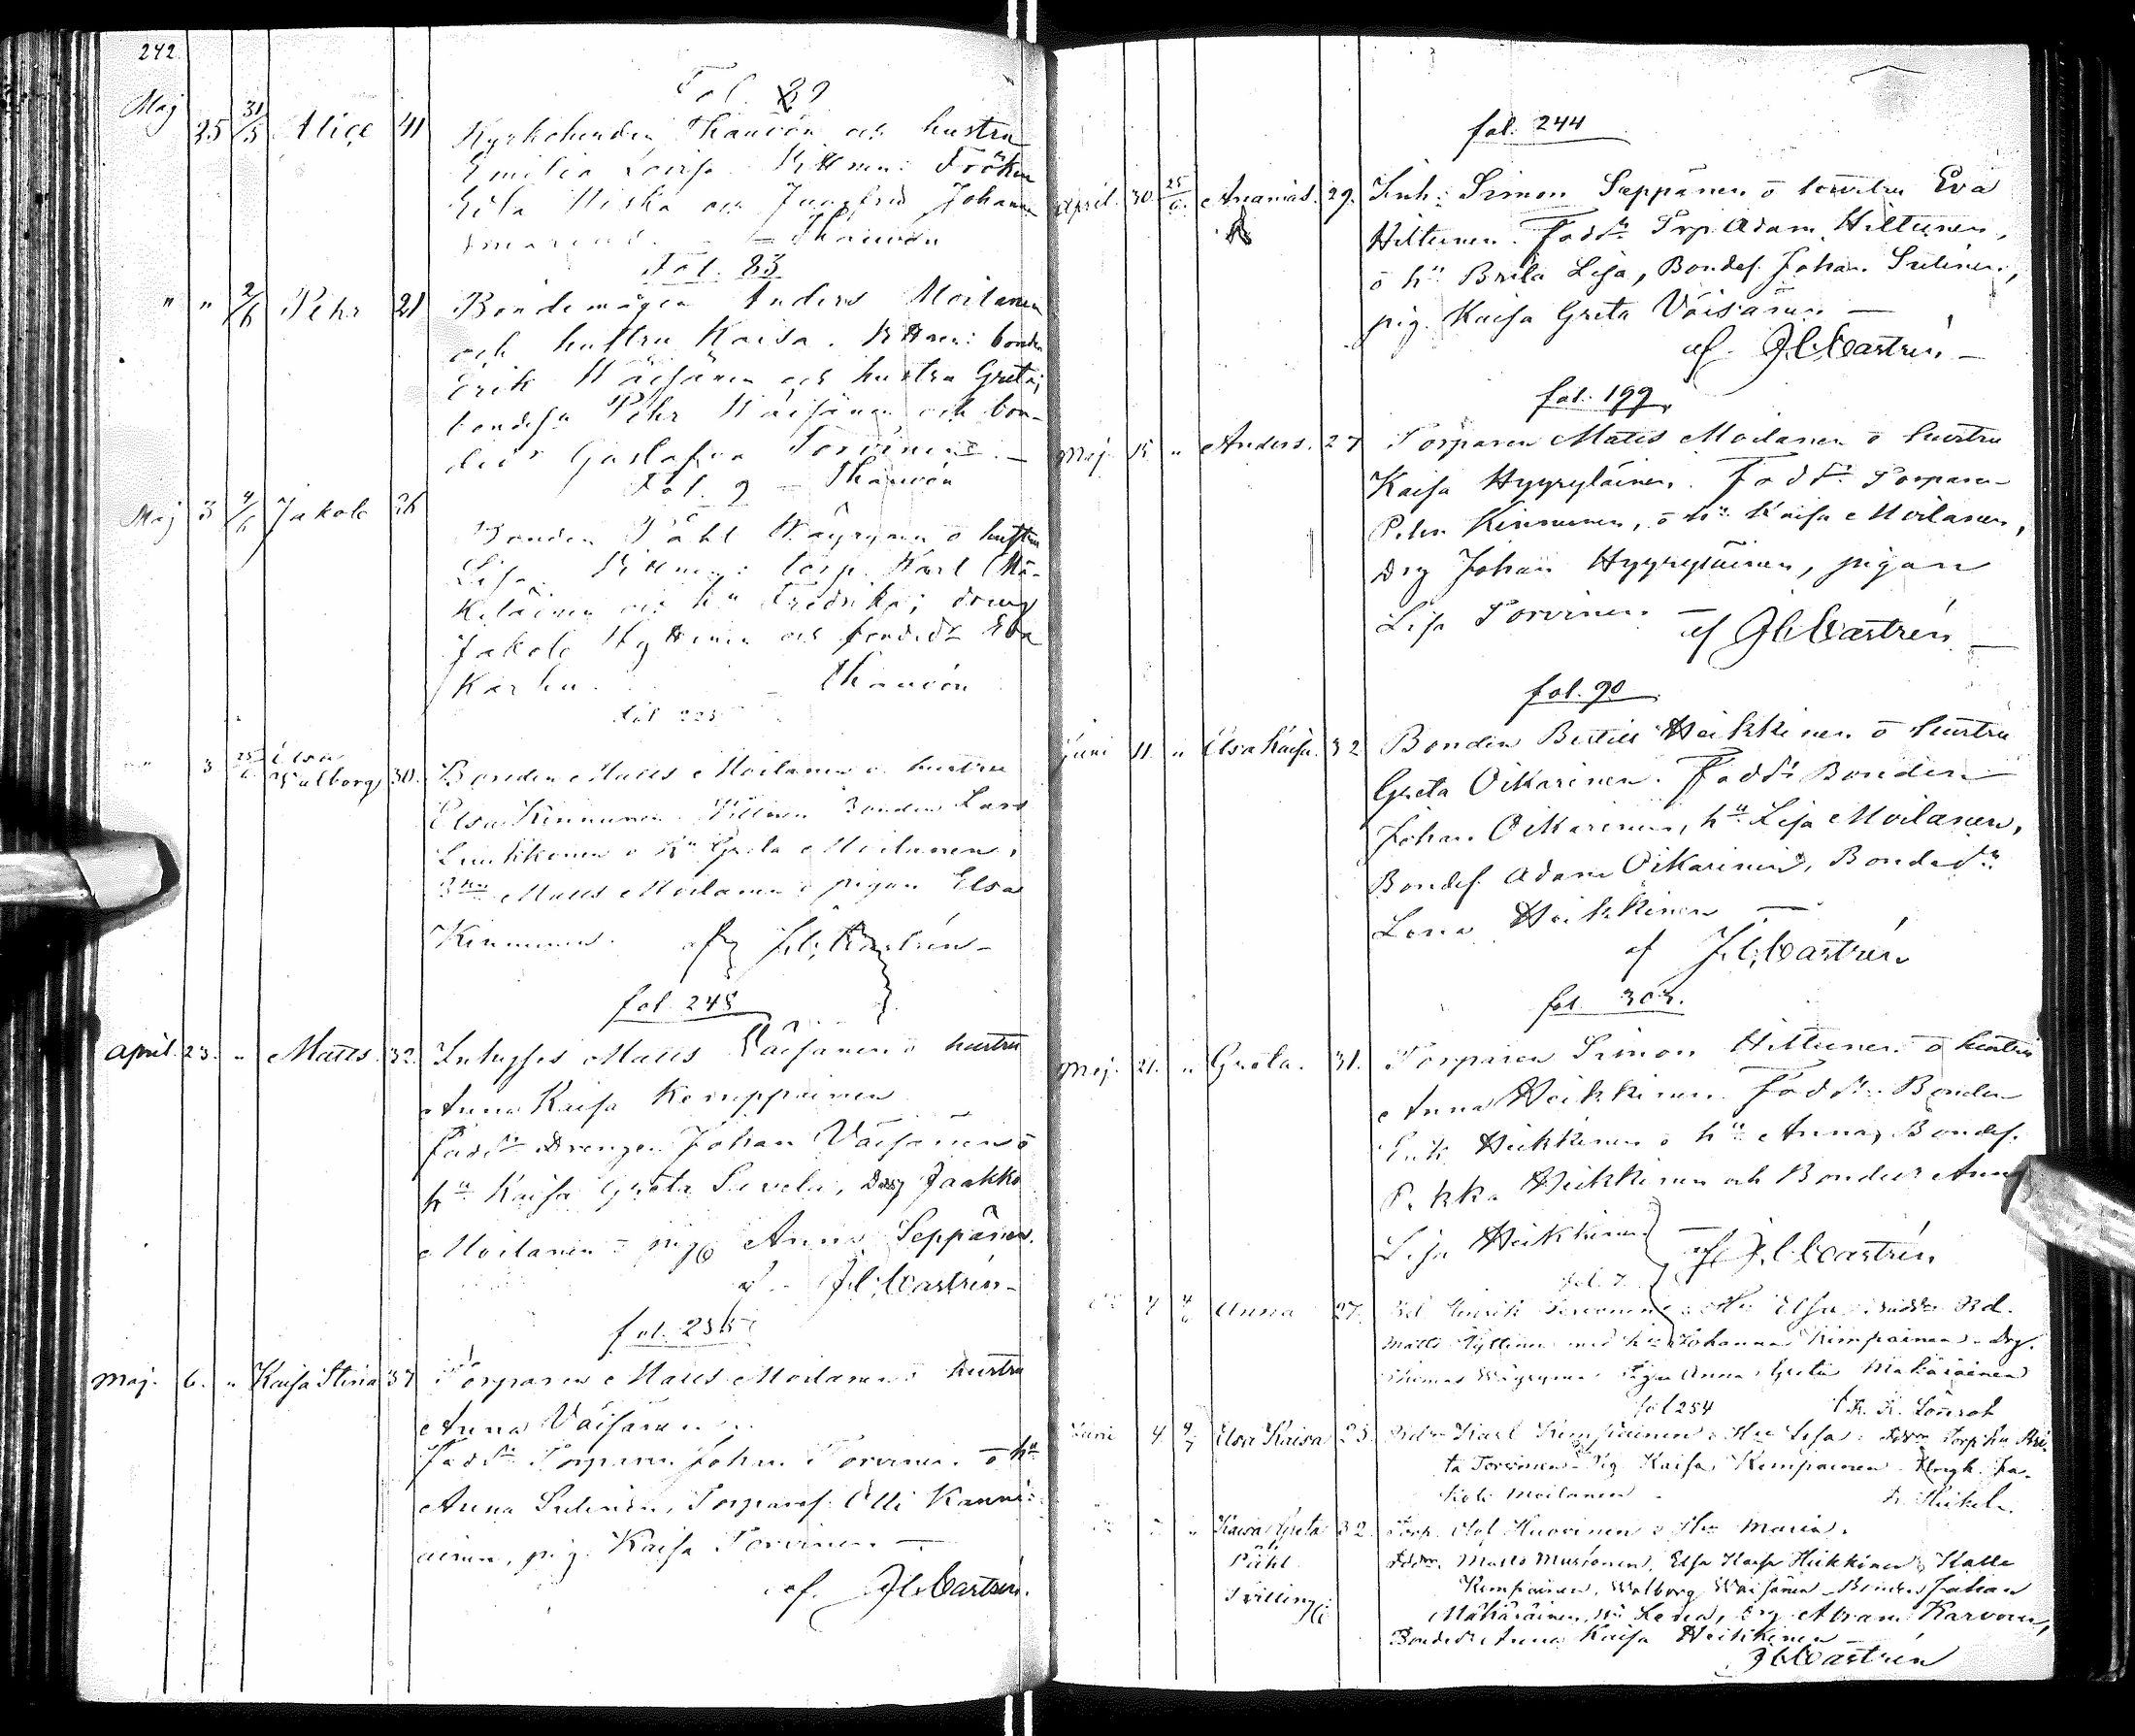 242
Fol. 89
Maj 25 31/5 Alice 41 Kyrkoherden Thauvón och hustru
Emilia Lovisa. Vittnen: Fröken
och Jungfru Johanna
Thauvón
Fol. 83
" " 2/6 Pehr 21 Bondemågen Anders Moilanen
och hustru Kaisa. Vittnen: bonden
Erik Väisänen och hustru Greta;
bondesn Pehr Väisänen och bon-
dedr Gustafva Torvinen. —
Fol. 9 — Thauvón
Maj 3 4/6 Jakob 26
Bonden Påhl Väyrynen o hustru
Lisa. Vittnen: torp. Karl Mä-
keläinen och hu Fredrika; dreng
Jakob Hyttinen och bondedr Eva
Karhu. — Thauvón
fol. 225
" 3 25/6 Elsa
Valborg 30. Bonden Matts Moilanen o hustru
Elsa Kinnunen. Vittnen Bonden Lars
Luukkonen o hu Greta Moilanen,
Matts Moilanen o pigan Elsa
Kinnunen. af J.C. Castrén —
fol. 245
April. 23. " Matts. 32. Inhyses Matts Väisänen o hustru
Anna Kaisa Kemppainen
Faddr Drengen Johan Väisänen o
hu Kaisa Greta, Dreng Jaakko
Moilanen o pig Anna Seppänen.
af J.C. Castrén —
fol.
Maj. 6. " Kaisa Stina 37 Torparen Matts Moilanen o hustru
Anna Väisänen.
Faddr Torparen Johan Torvinen o hu
Anna Sutinen, Torparesn Olli Kanni-
ainen, pig. Kaisa Torvinen —
af. J.C. Castrén.
fol. 244
April. 30. 25/6. Ananias. 29. Inh: Simon Seppänen o hustru Eva
Hiltunen. Faddr Torp Adam Hiltunen,
o hu Brita Lisa, Bondes. Johan Sutinen,
pig. Kaisa Greta Väisänen —
af. J.C. Castrén —
fol. 199
Maj. 15 " Anders. 27 Torparen Matts Moilanen o hustru
Kaisa Hyyryläinen. Faddr Torparen
Peter Kinnunen, o hu Kaisa Moilanen,
Drg Johan Hyyryläinen, pigan
Lisa Torvinen —
af J.C. Castrén —
fol. 90
Juni 11. " Elsa Kaisa. 32 Bonden Bertill Heikkinen o hustru
Greta Oikarinen. Faddr Bonden
Johan Oikarinen, hu Lisa Moilanen,
Bondes. Adam Oikarinen, Bondedr
Lena Heikkinen —
af J.C. Castrén
fol. 303.
Maj. 21. " Greta. 31. Torparen Simon Hiltunen o hustru
Anna Heikkinen. Faddr Bonden
Erik Heikkinen o hu Anna, Bondes.
Pekka Heikkinen och Bondedr Anna
Lisa Heikkinen — af J.C. Castrén
fol. 7
4 4/6 Anna 27. Bd. Henrik o Hu Elsa: Faddr Bd.
Matts Hyttinen med hu Johanna Kempainen. Drg.
Thomas Väyrynen Pigan Anna Greta Mäkäräinen
fol 254 F. F. Lönnrot
Juni 4 4/7 Elsa Kaisa 23. Karl Kempainen o Hu Lisa: Torp hu Bri-
ta Torvinen Pig Kaisa Kempainen Ja-
kob Moilanen
" Kaisa Greta 32 Torp. Olof Huovinen o Hu Maria.
Påhl
Matts Mustonen, Elsa Kaisa Heikkinen, Kalle
Tvillingar
Kempainen, Walborg Väisänen, Bonden Johan
Mäkäräinen, hu Leena, drg Abram Karvonen,
Bondedr Anna Kaisa Heikkinen
J.C. Castrén